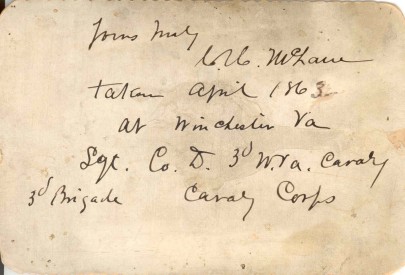 Yours Truly
McLane
taken April 1863
at Winchester Va
Sgt. Co. D. 3d W.Va. Cavaly
3d Brigade Cavaly Corps